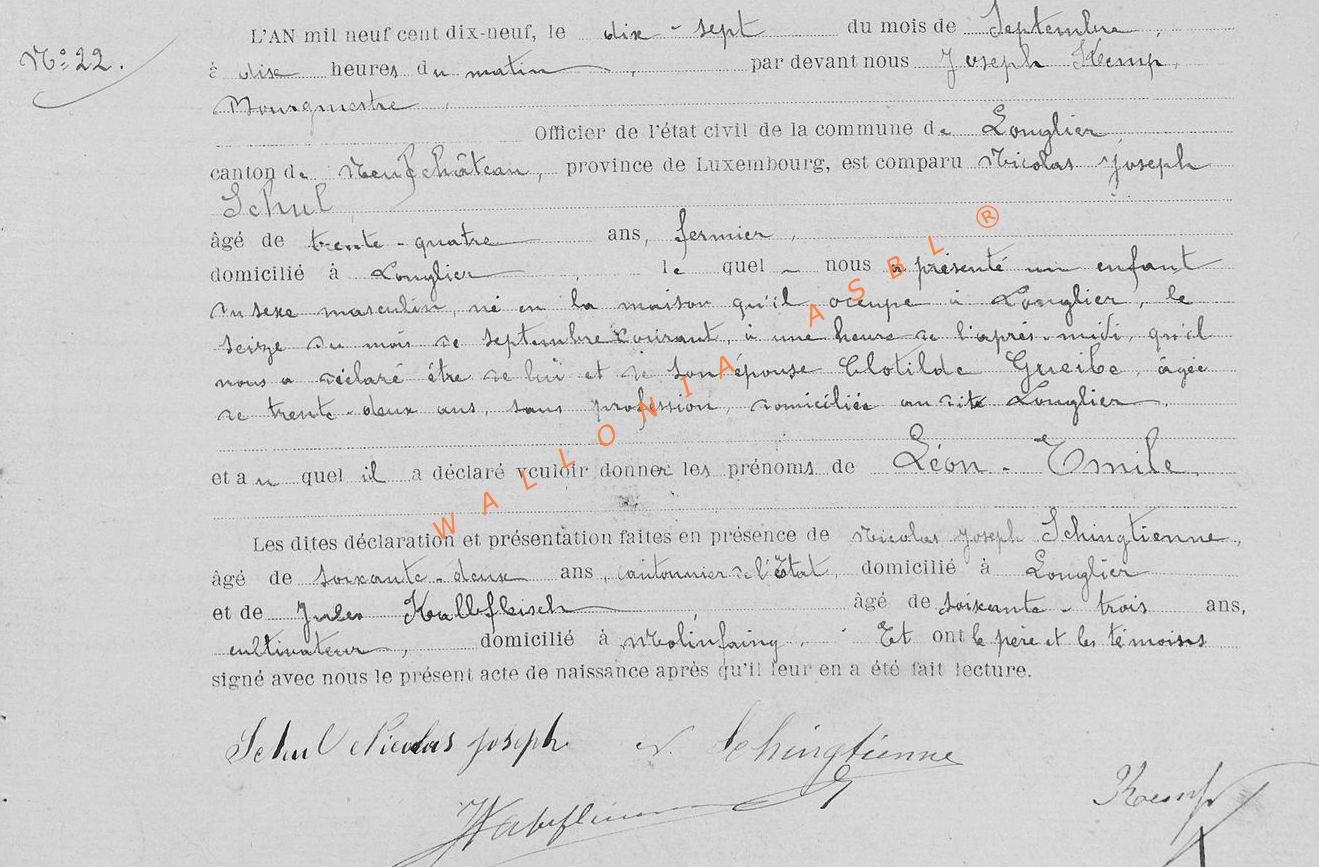 L'AN mil neuf cent dix-neuf, le dix-sept du mois de Septembre,
N° 22. à dix heures du matin, par devant nous Joseph Kemp,
Bourgmestre
Officier de l'état civil de la commune de Longlier
canton de Neufchâteau, province de Luxembourg, est comparu Nicolas Joseph
Schul,
âgé de trente-quatre ans, fermier,
domicilié à Longlier, lequel nous a présenté un enfant
du sexe masculin, né en la maison qu'il occupe à Longlier, le
seize du mois de septembre courant, à une heure de l'après-midi, qu'il
nous a déclaré être de lui et de son épouse Clotilde Gueibe, âgée
de trente-deux ans, sans profession, domiciliée au dit Longlier,
et auquel il a déclaré vouloir donner les prénoms de Léon-Emile.
Les dites déclaration et présentation faites en présence de Nicolas Joseph Schingtienne,
âgé de soixante-deux ans, cantonnier de l'Etat, domicilié à Longlier
et de Jules Kalbfleisch, âgé de soixante-trois ans,
cultivateur, domicilié à Molinfaing. Et ont le père et les témoins
signé avec nous le présent acte de naissance après qu'il leur en a été fait lecture.
Schul Nicolas Joseph N. Schingtienne
Kemp
WALLONIA ASBL ®